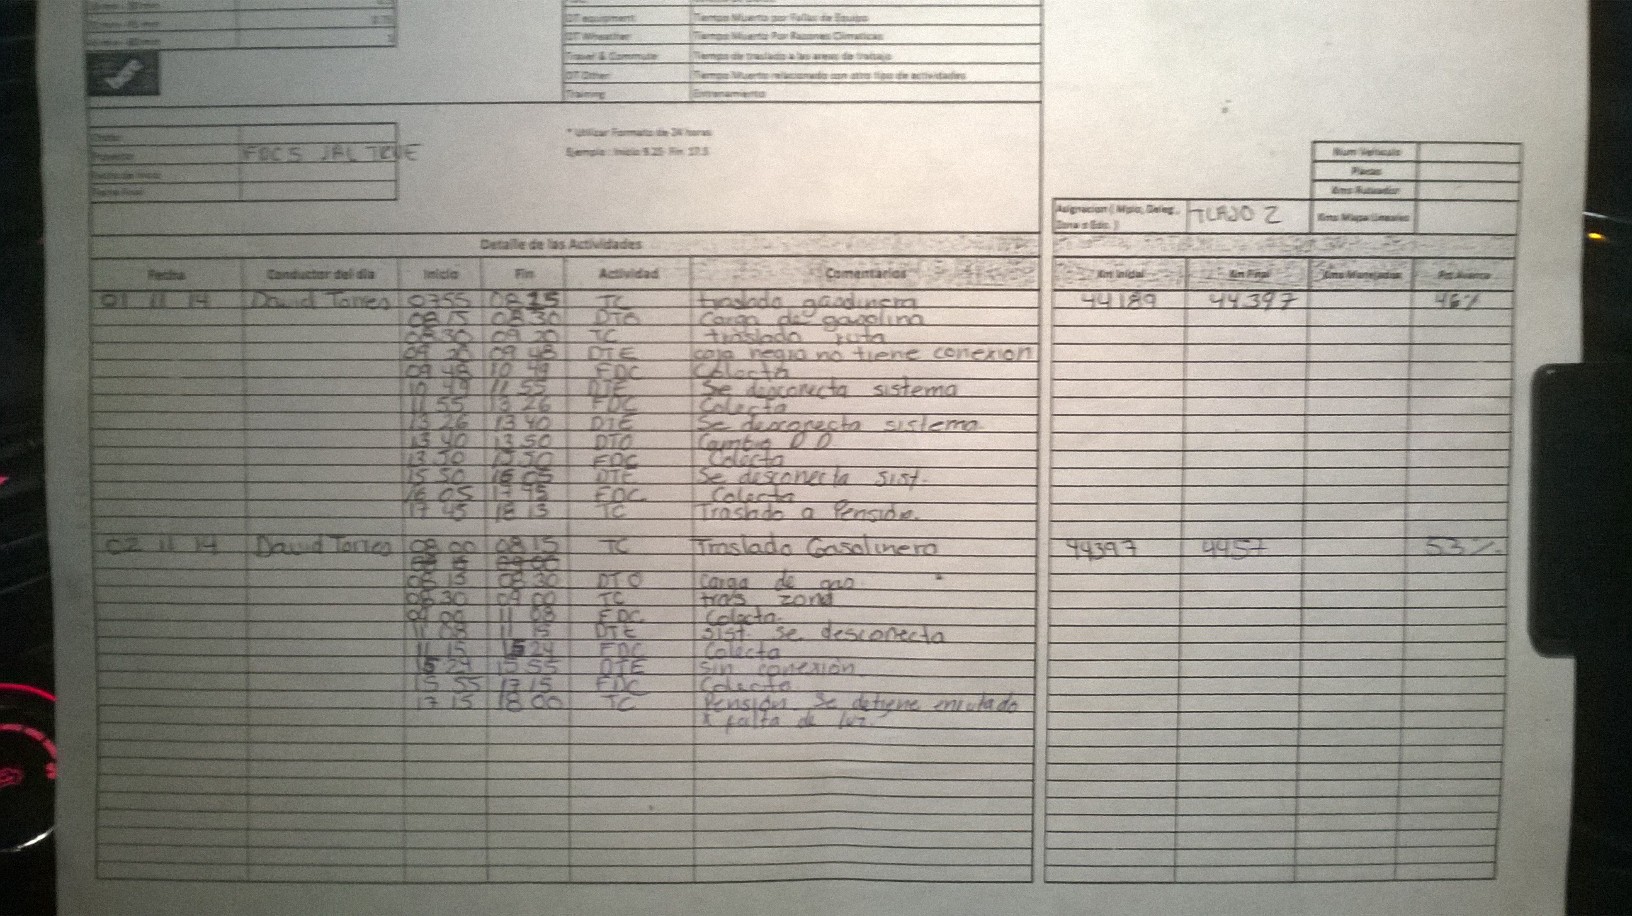 0.75
DT equipment Tiempo Muerto por Fallas de Equipo
DT Wheather Tiempo Muerto Por Razones Climaticas
Travel & Commute Tiempo de traslado a las areas de trabajo
DT Other Tiempo Muerto relacionado con otro tipo de actividades
Training Entrenamiento
* Utilizar Formato de 24 horas
Proyecto FDCS JAL TKVE
Ejemplo: Inicio 8.25 Fin 17.5
Fecha de Inicio
Fecha Final
Num Vehiculo
Placas
Kms Ruteador
Asignacion ( Mpio, Deleg.,
Zona o Edo. ) TLAJO 2 Kms Mapa Lineales
Detalle de las Actividades
Fecha Conductor del dia Inicio Fin Actividad Comentarios Km Inicial Km Final Kms Manejados Pct Avance
01 11 14 David Torres 0755 08 15 TC traslado gasolinera 44189 44397 46%
08 15 08 30 DTO Carga de gasolina
08 30 09 20 TC traslado ruta
09 20 09 48 DTE caja negra no tiene conexion
09 48 10 49 FDC Colecta
10 49 11 55 DTE Se desconecta sistema
11 55 13 26 FDC Colecta
13 26 13 40 DTE Se desconecta sistema.
13 40 13 50 DTO Cambio D D
13 50 15 50 FDC Colecta
15 50 16 05 DTE Se desconecta sist.
16 05 17 45 FDC Colecta
17 45 18 13 TC Traslado a Pension.
02 11 14 David Torres 08 00 08 15 TC Traslado Gasolinera 44397 4457 53%
08 15 08 30 DTO carga de gas
08 30 09 00 TC tras zona
09 00 11 08 FDC Colecta.
11 08 11 15 DTE sist. se desconecta
11 15 15 24 FDC Colecta
15 24 15 55 DTE sin conexión
15 55 17 15 FDC Colecta
17 15 18 00 TC Pensión se detiene enrutado
x falta de luz.